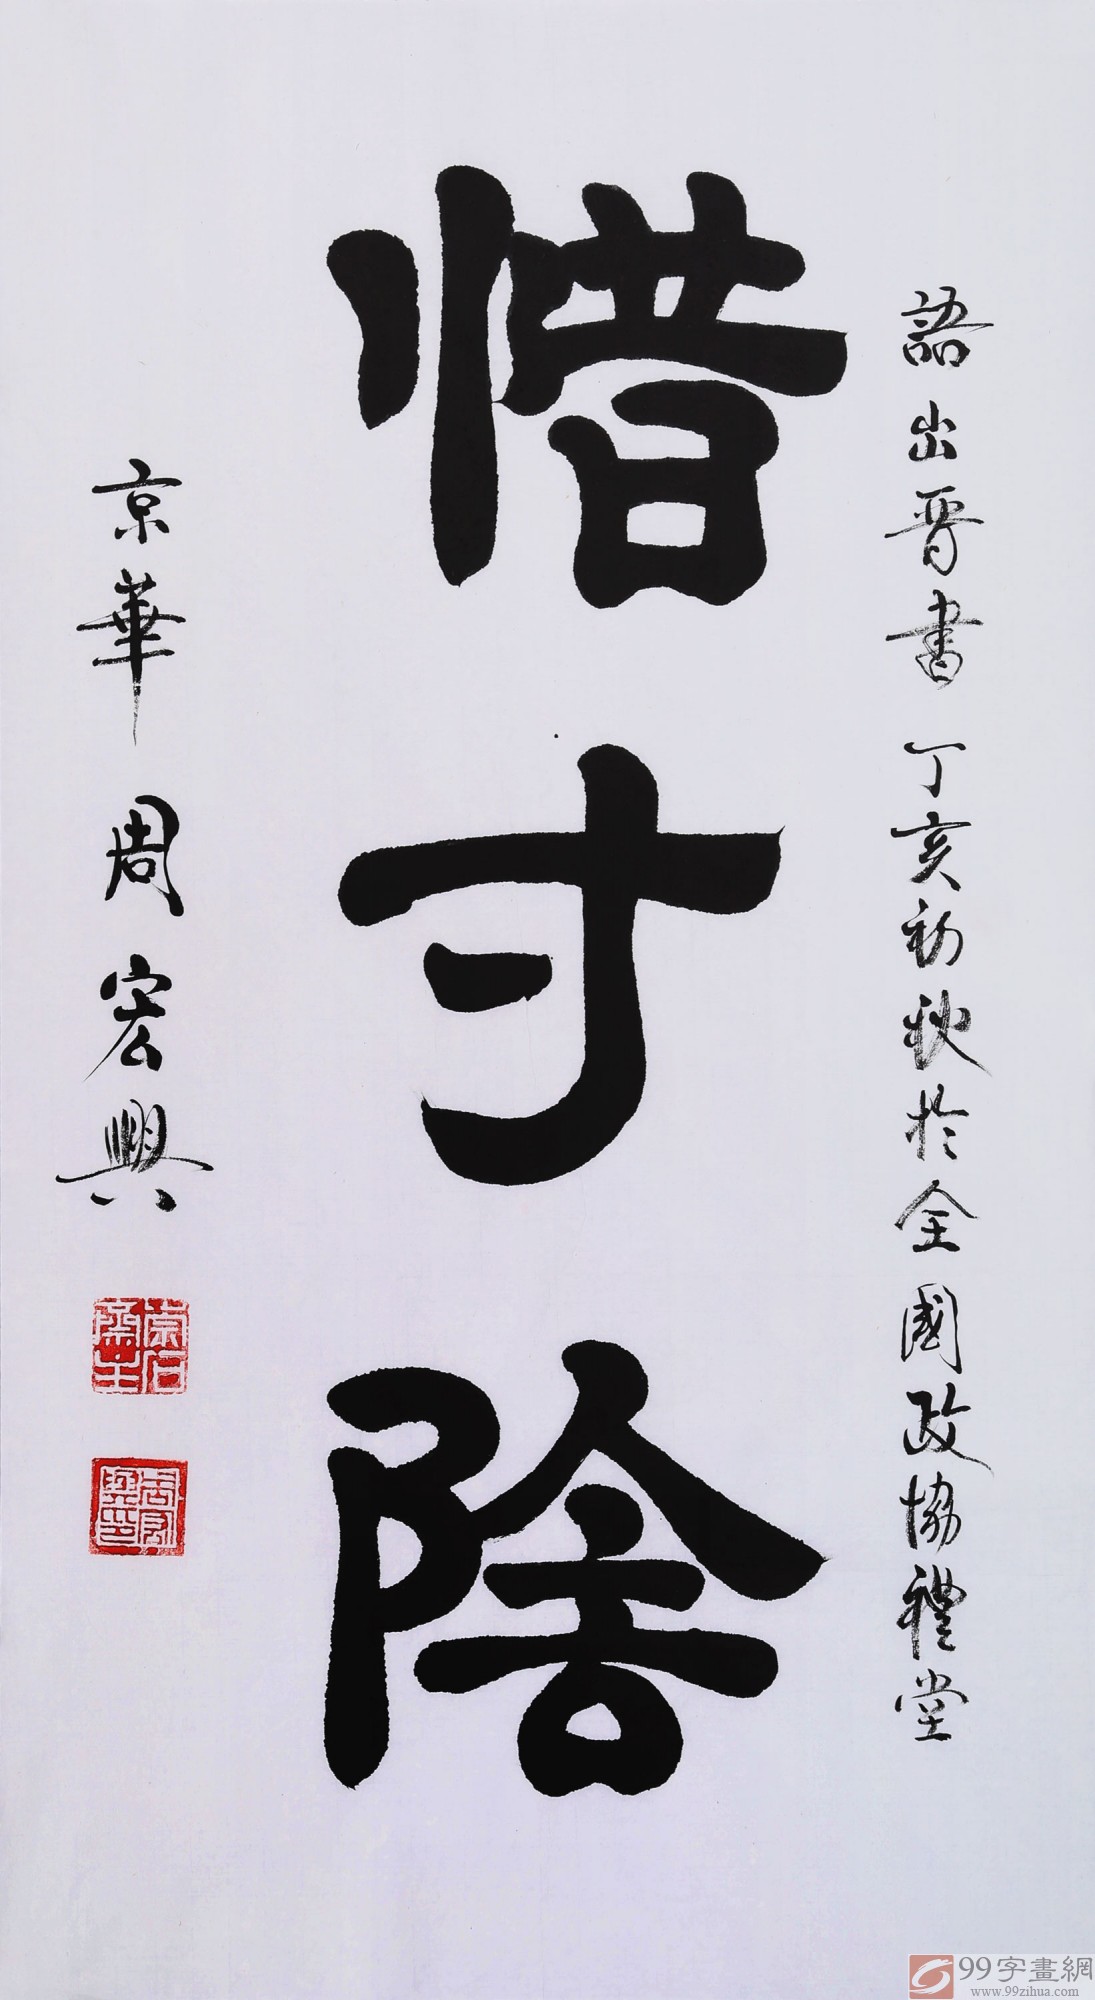 語出晉書 丁亥初秋於全國政協禮堂
惜寸陰
京華 周宏興
99字畫網
www.99zihua.com